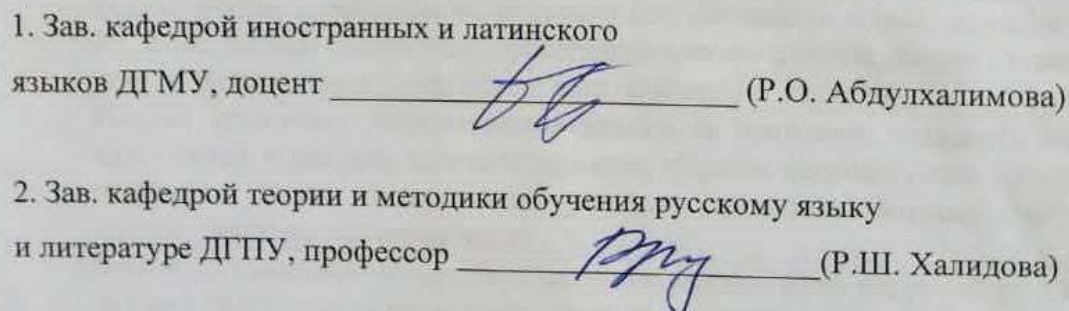 1. Зав. кафедрой иностранных и латинского
языков ДГМУ, доцент ____________________________ (Р.О. Абдулхалимова)
2. Зав. кафедрой теории и методики обучения русскому языку
и литературе ДГПУ, профессор _________________________(Р.Ш. Халидова)